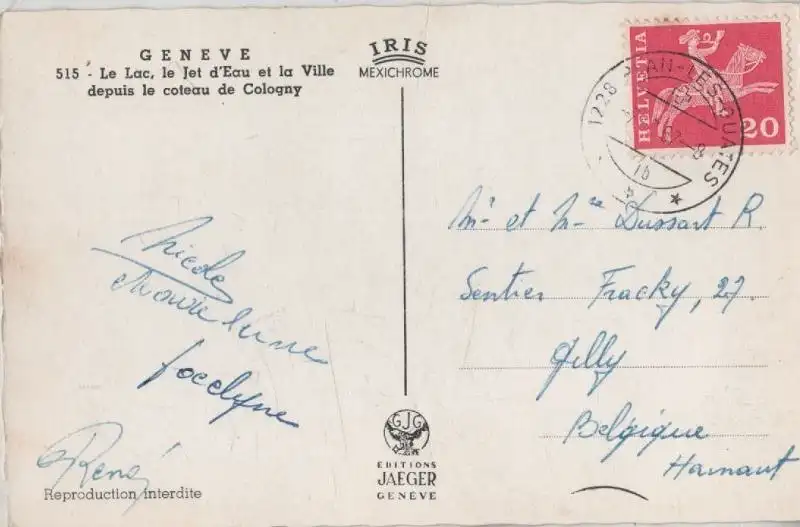 GENEVE
515 - Le Lac, le Jet d'Eau et la Ville
depuis le coteau de Cologny
IRIS
MEXICHROME
HELVETIA
20
1228 PLAN-LES-OUATES
Mr et Mme Dussart R.
Sentier Fracky, 27
Gilly
Belgique
Hainaut
Nicole
Jocelyne
René
Reproduction interdite
GJG
EDITIONS
JAEGER
GENÈVE